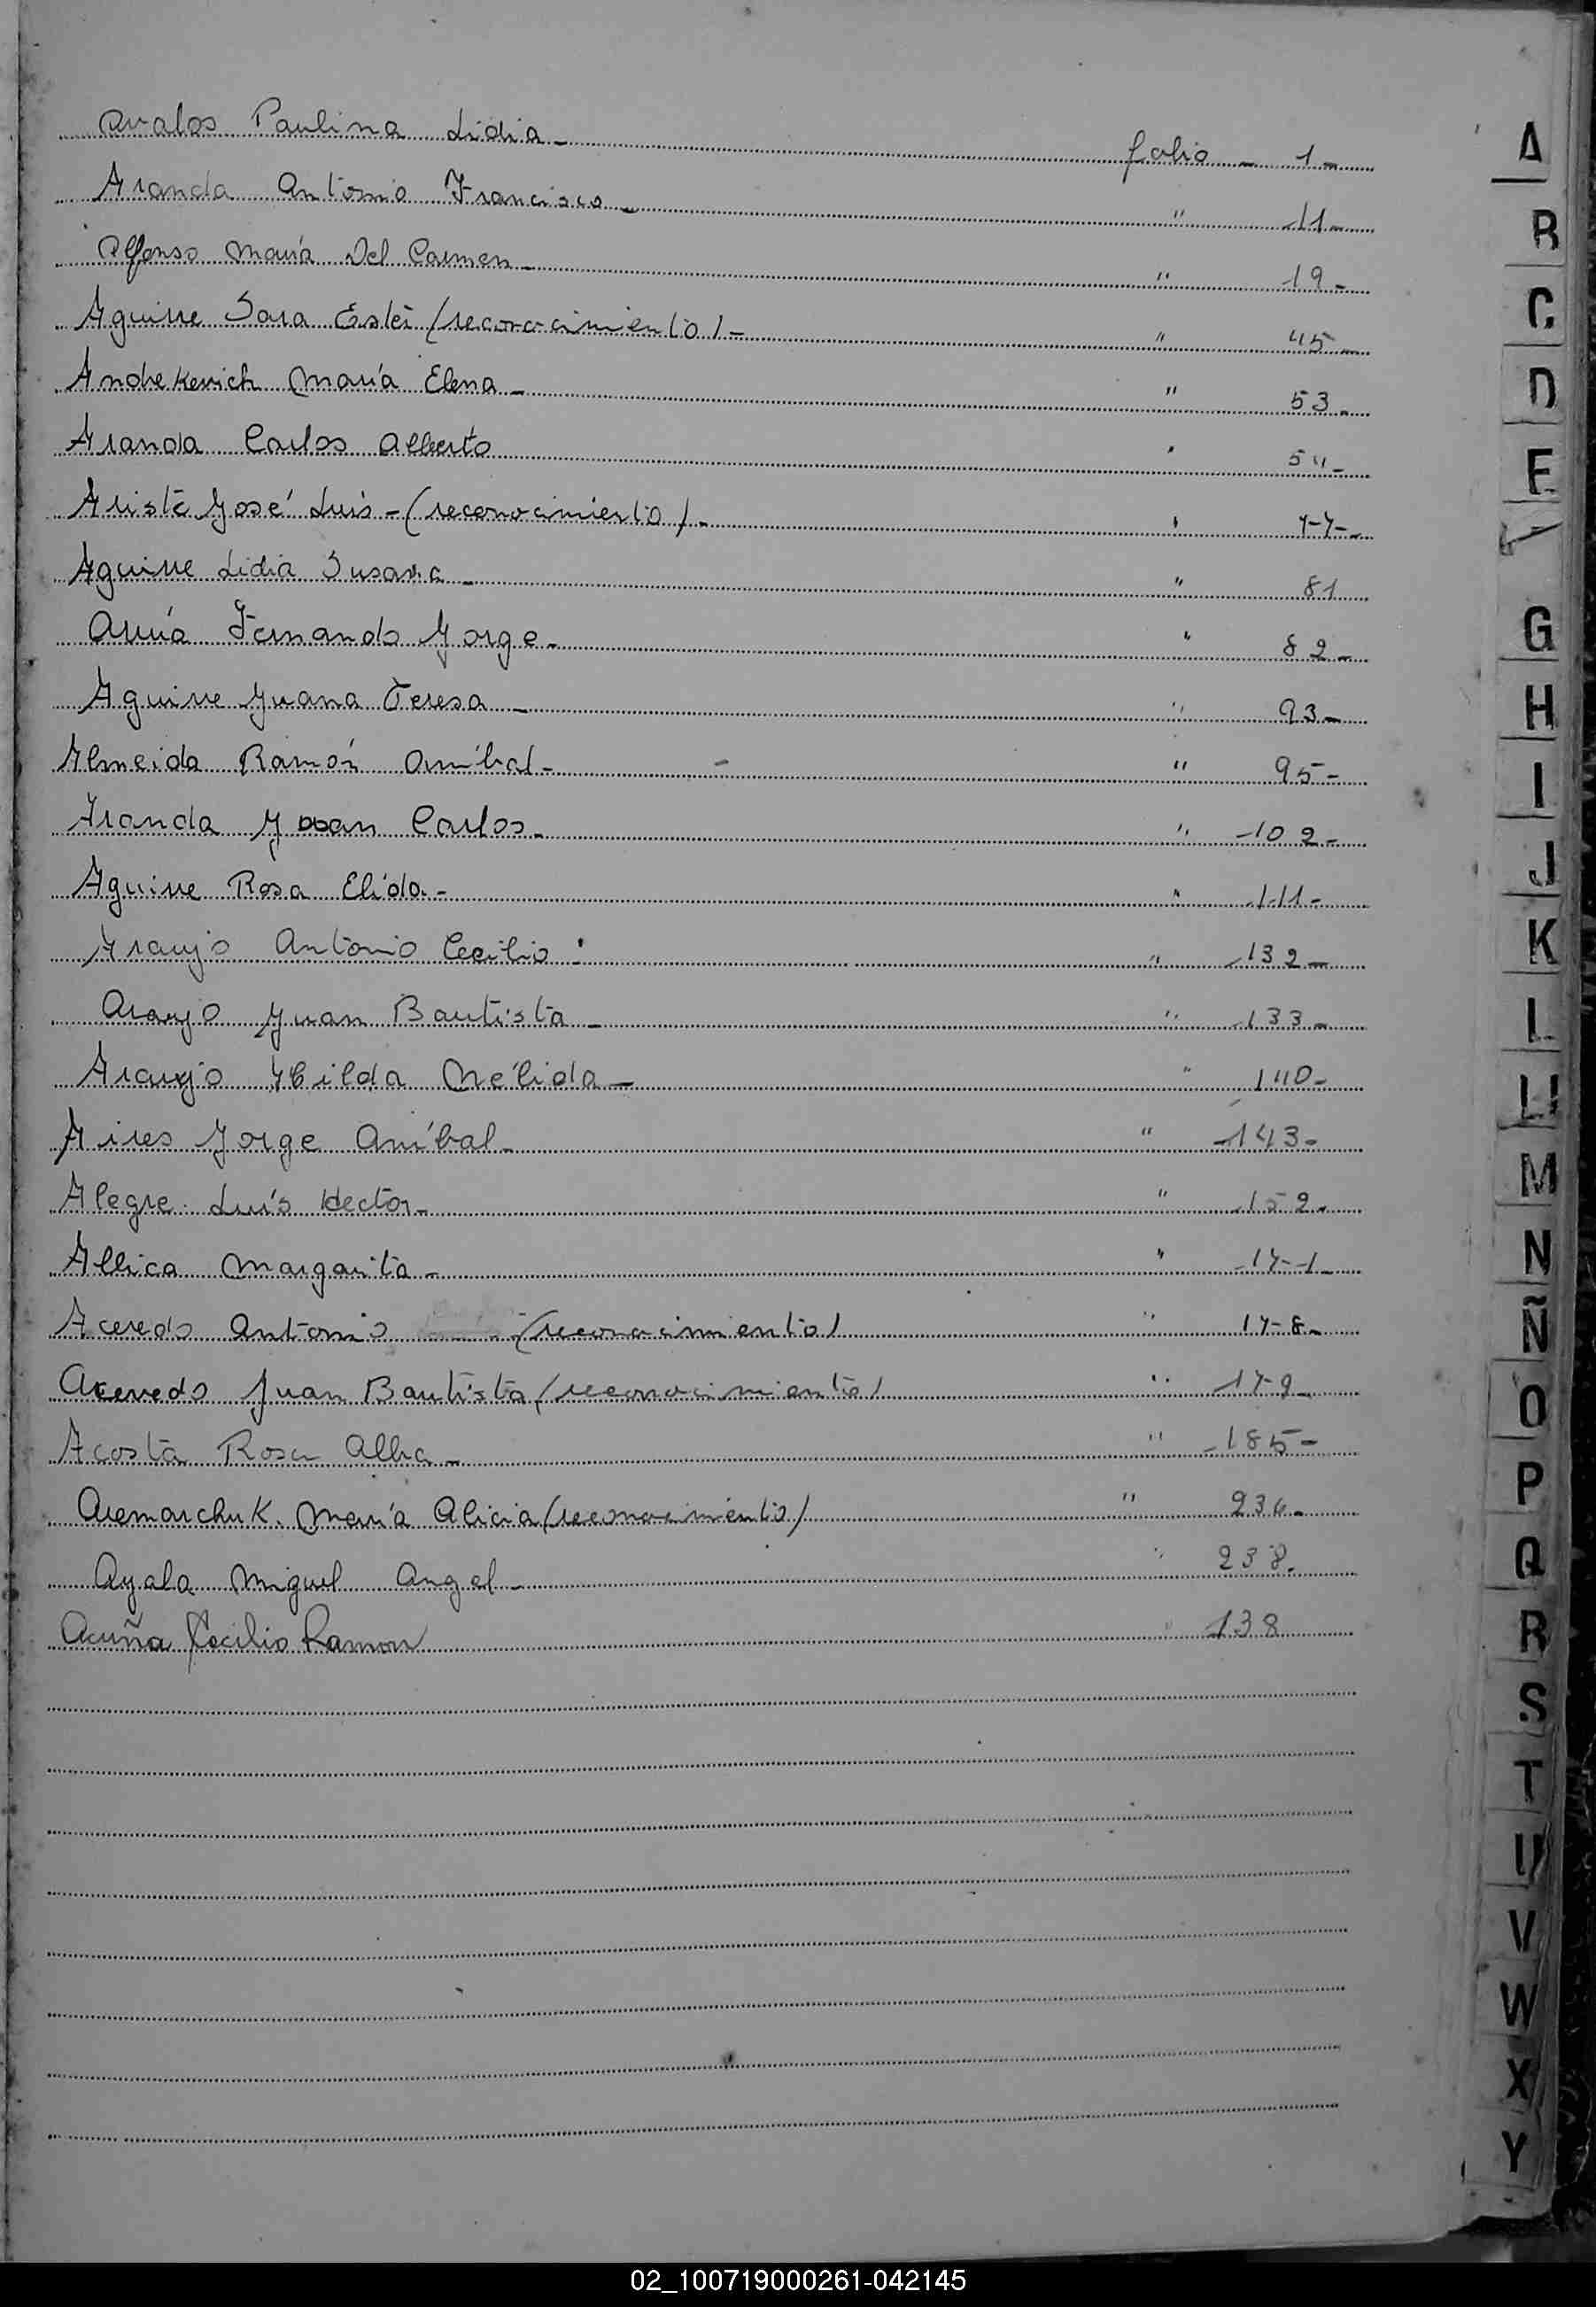 Avalos Paulina Lidia - folio - 1 -
Aranda Antonio Francisco - " 11 -
Alfonso María Del Carmen - " 19 -
Aguirre Sara Ester (reconocimiento) - " 45 -
Andrekevich María Elena - " 53 -
Aranda Carlos Alberto " 54 -
Aristi José Luis - (reconocimiento) - " 77 -
Aguirre Lidia Susana - " 81
Fernando Jorge - " 82 -
Aguirre Juana Teresa - " 93 -
Almeida Ramón Aníbal - " 95 -
Aranda Juan Carlos - " 102 -
Aguirre Rosa Elida - " 111 -
Araujo Antonio Cecilio : " 132 -
Araujo Juan Bautista - " 133 -
Araujo Hilda Nélida - " 140 -
Aires Jorge Aníbal - " 143 -
Alegre Luís Hector - " 152 -
Allica Margarita - " 171 -
Acevedo Antonio (reconocimiento) " 178 -
Acevedo Juan Bautista (reconocimiento) " 179 -
Acosta Rosa Alba - " 185 -
Aremarchuk. María Alicia (reconocimiento) " 234 -
Ayala Miguel Angel - " 238 -
Acuña Cecilio Ramon " 138
A
B
C
D
E
G
H
I
J
K
L
LL
M
N
Ñ
O
P
Q
R
S
T
U
V
W
X
Y
02_100719000261-042145